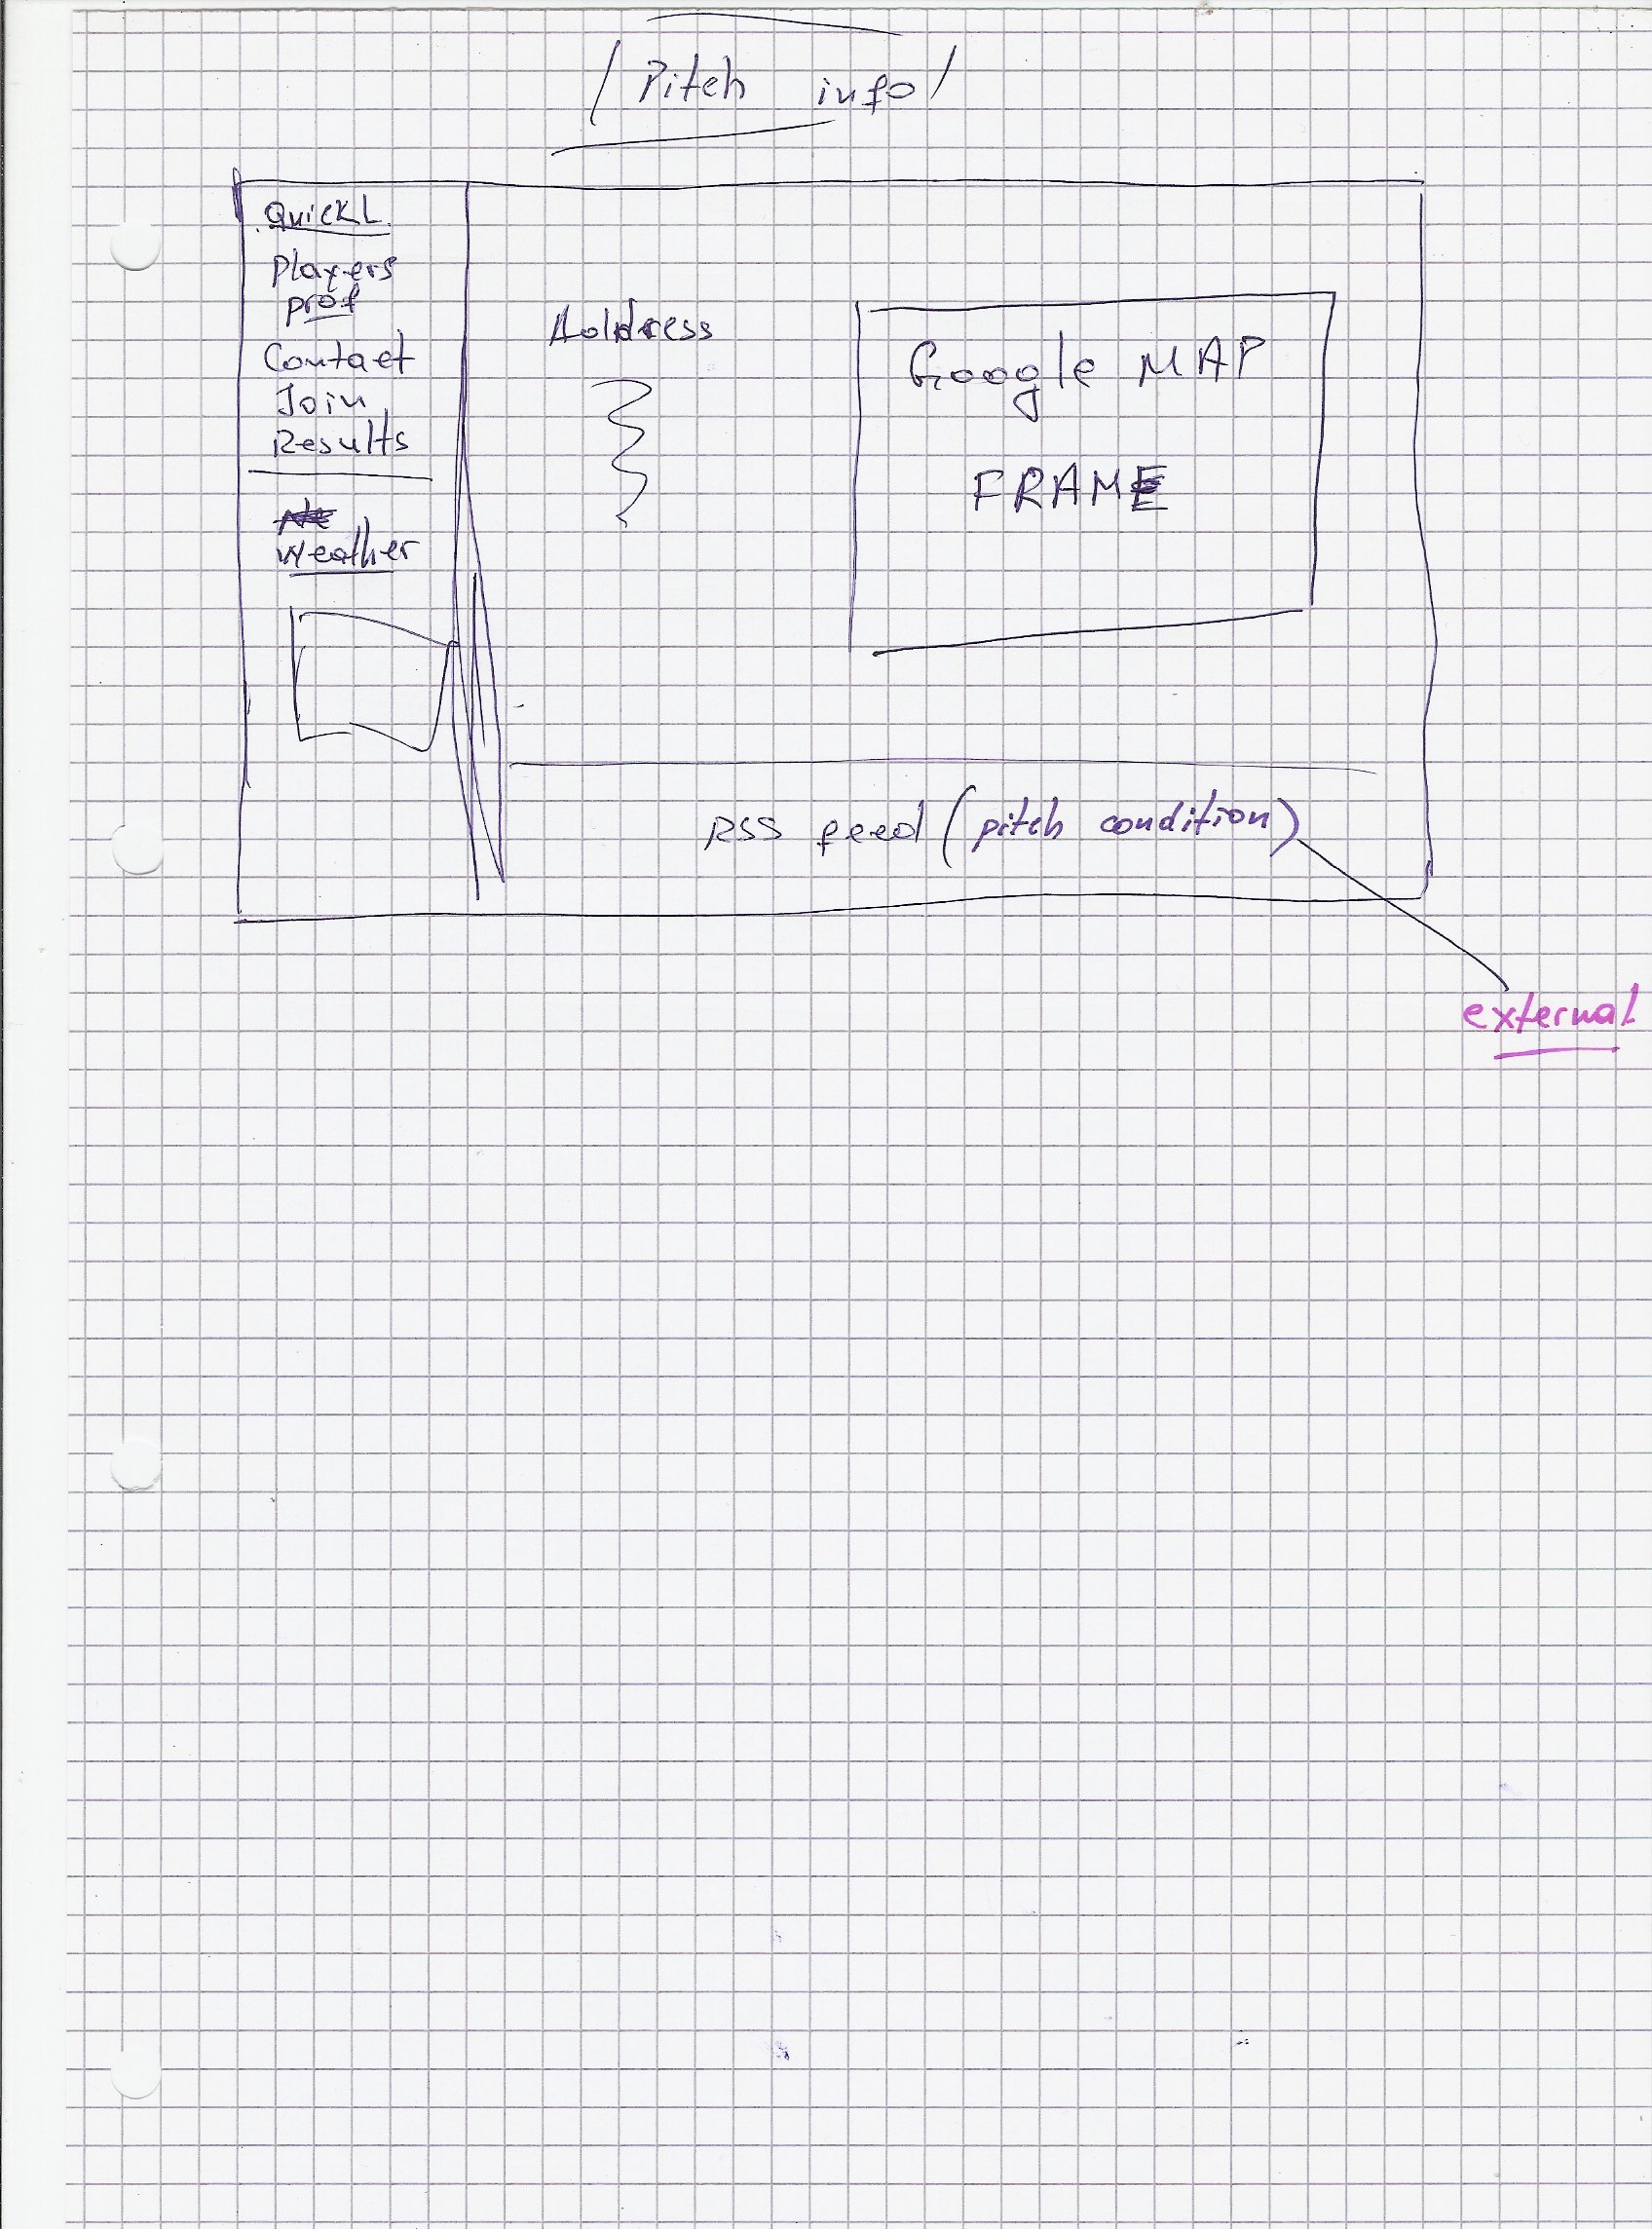 / Pitch info /
QuickL.
Players
prof
Contact
Join
Results
Weather
Address
Google MAP
FRAME
RSS feed (pitch condition)
external